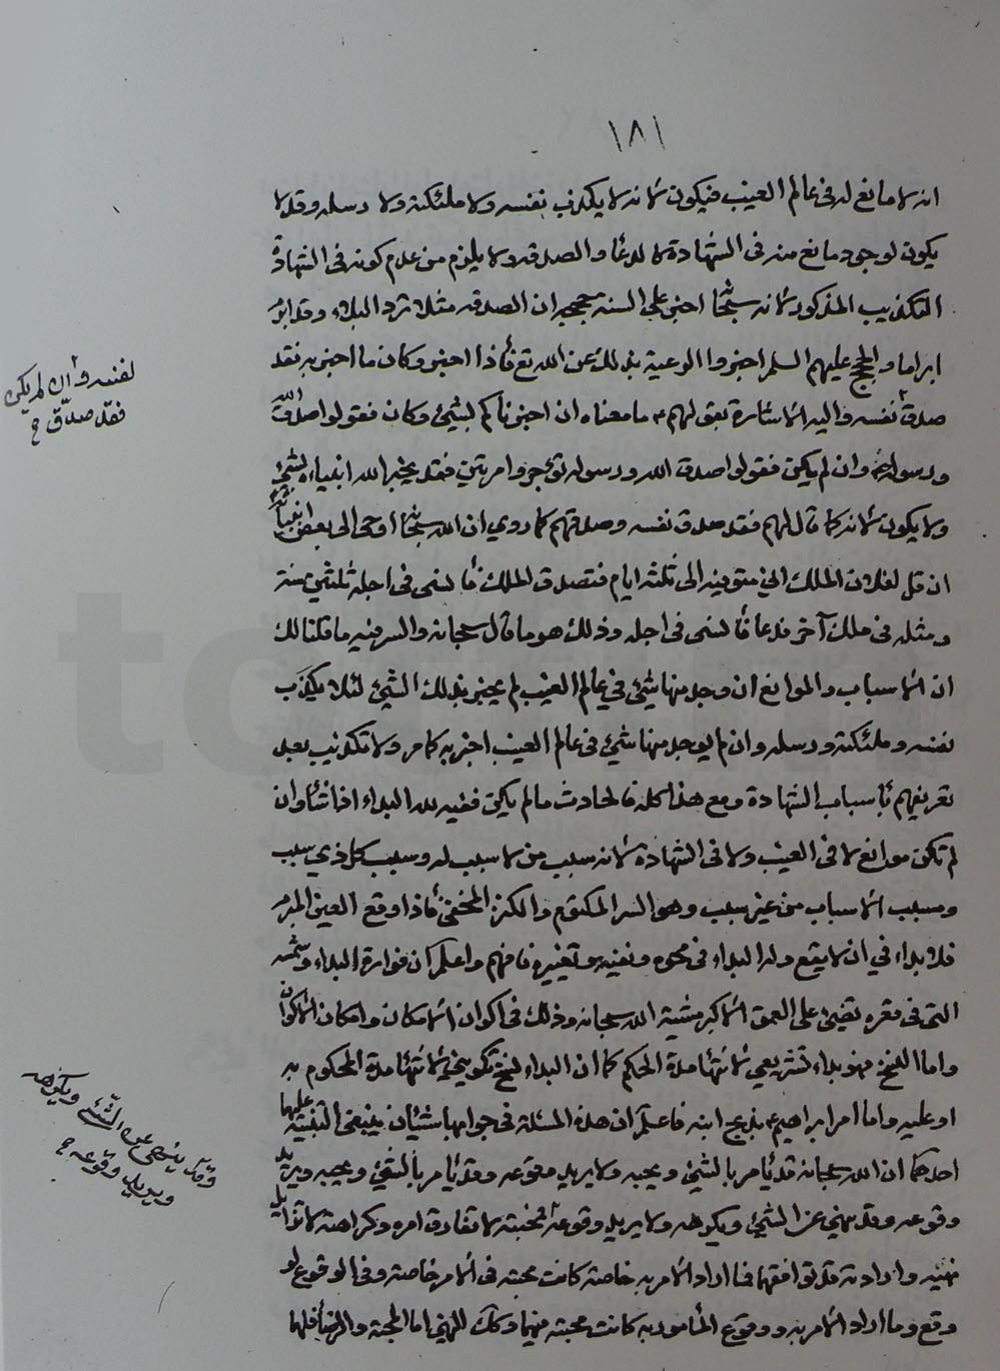 ١٨١
انه لا مانع له فى عالم الغيب فيكون لانه لا يكذب نفسه ولا ملئكته ولا رسله وقد لا
يكون لوجود مانع منه فى الشهادة كالدعا والصدقة ولا يلزم من عدم كونه فى الشهادة
التكذيب المذكور لانه سبحانه اخبر على السنة حججه ان الصدقة مثلا ترد البلاء وقد
ابراما والحجج عليهم السلم اخبروا الرعية بذلك عن الله تع فأذا اخبر وكان ما اخبر به فقد
صدق نفسه واليه الاشارة بقولهم ع ما معناه ان اخبرناكم بشيئ وكان فقولوا صدق الله
ورسوله وان لم يكن فقولوا صدق الله ورسوله تؤجروا مرتين فقد يخبر الله انبياءه بشيئ
ولا يكون لانه كما قال لهم فقد صدق نفسه وصدقهم كما روي ان الله سبحانه اوحى الى بعض انبيائه
ان قل لفلان الملك اني متوفيه الى ثلثة ايام فتصدق الملك فأنسى فى اجله ثلثين سنة
ومثله فى ملك آخر فدعا فأنسى فى اجله وذلك هو ما قال سبحانه والسر فيه ما قلنا لك
ان الاسباب والموانع ان وجد منها شيئ في عالم الغيب لم يخبر بذلك الشيئ لئلا يكذب
نفسه وملئكته ورسله وان لم يوجد منها شيئ فى عالم الغيب اخبر به كما مر ولا تكذيب بعد
تعريفهم بأسباب الشهادة ومع هذا كله فالحادث ما لم يكن ففيه لله البداء اذا شاء وان
لم تكن موانع لا فى الغيب ولا فى الشهادة لانه سبب من لا سبب له وسبب كل ذي سبب
ومسبب الاسباب من غير سبب وهو السر المكتوم والكنز المخفي فاذا وقع العين المبرم
فلا بداء في ان لا يقع وله البداء فى محوه ونفيه وتغييره فافهم واعلم ان فوارة البداء وشمسه
التى فى مقره تضيئ على العمق الاكبر مشية الله سبحانه وذلك فى اكوان الامكان وامكان الاكوان
واما النسخ فهو بداء تشريعي لانتهاء مدة الحكم كما ان البداء نسخ تكويني لانتهاء مدة المحكوم به
او عليه واما امر ابراهيم ع بذبح ابنه فاعلم ان هذه المسئلة فى جوابها شيئان ينبغى التنبيه عليها
احدهما ان الله سبحانه قد يأمر بالشيئ ويحبه ولا يريد وقوعه وقد يأمر بالشيئ ويحبه ويريد
وقوعه وقد ينهي عن الشيئ ويكرهه ولا يريد وقوعه فمحبته لا تفارق امره وكراهته لا تزايل
نهيه وارادته قد توافقهما فما اراد الامر به خاصة كانت محبته فى الامر خاصة وفى الوقوع لو
وقع وما اراد الامر به ووقوع المأمور به كانت محبته فيهما وكك النهي اما المحبة والرضا فلهما
لنفسه وان لم يكن
فقد صدق ح
وقد ينهى عن الشيئ ويكرهه
ويريد وقوعه ح